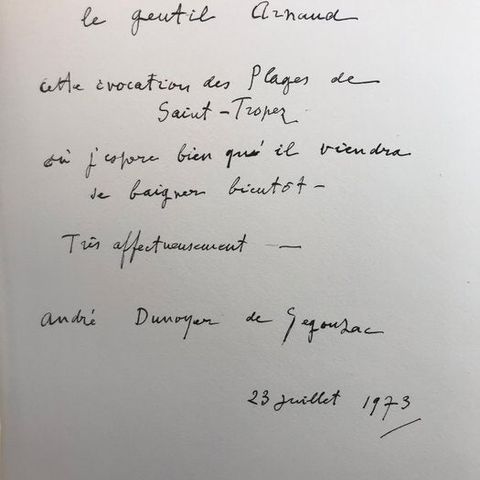 le gentil Arnaud
cette évocation des Plages de
Saint-Tropez
où j'espère bien qu'il viendra
se baigner bientôt -
Très affectueusement —
André Dunoyer de Segonzac
23 juillet 1973